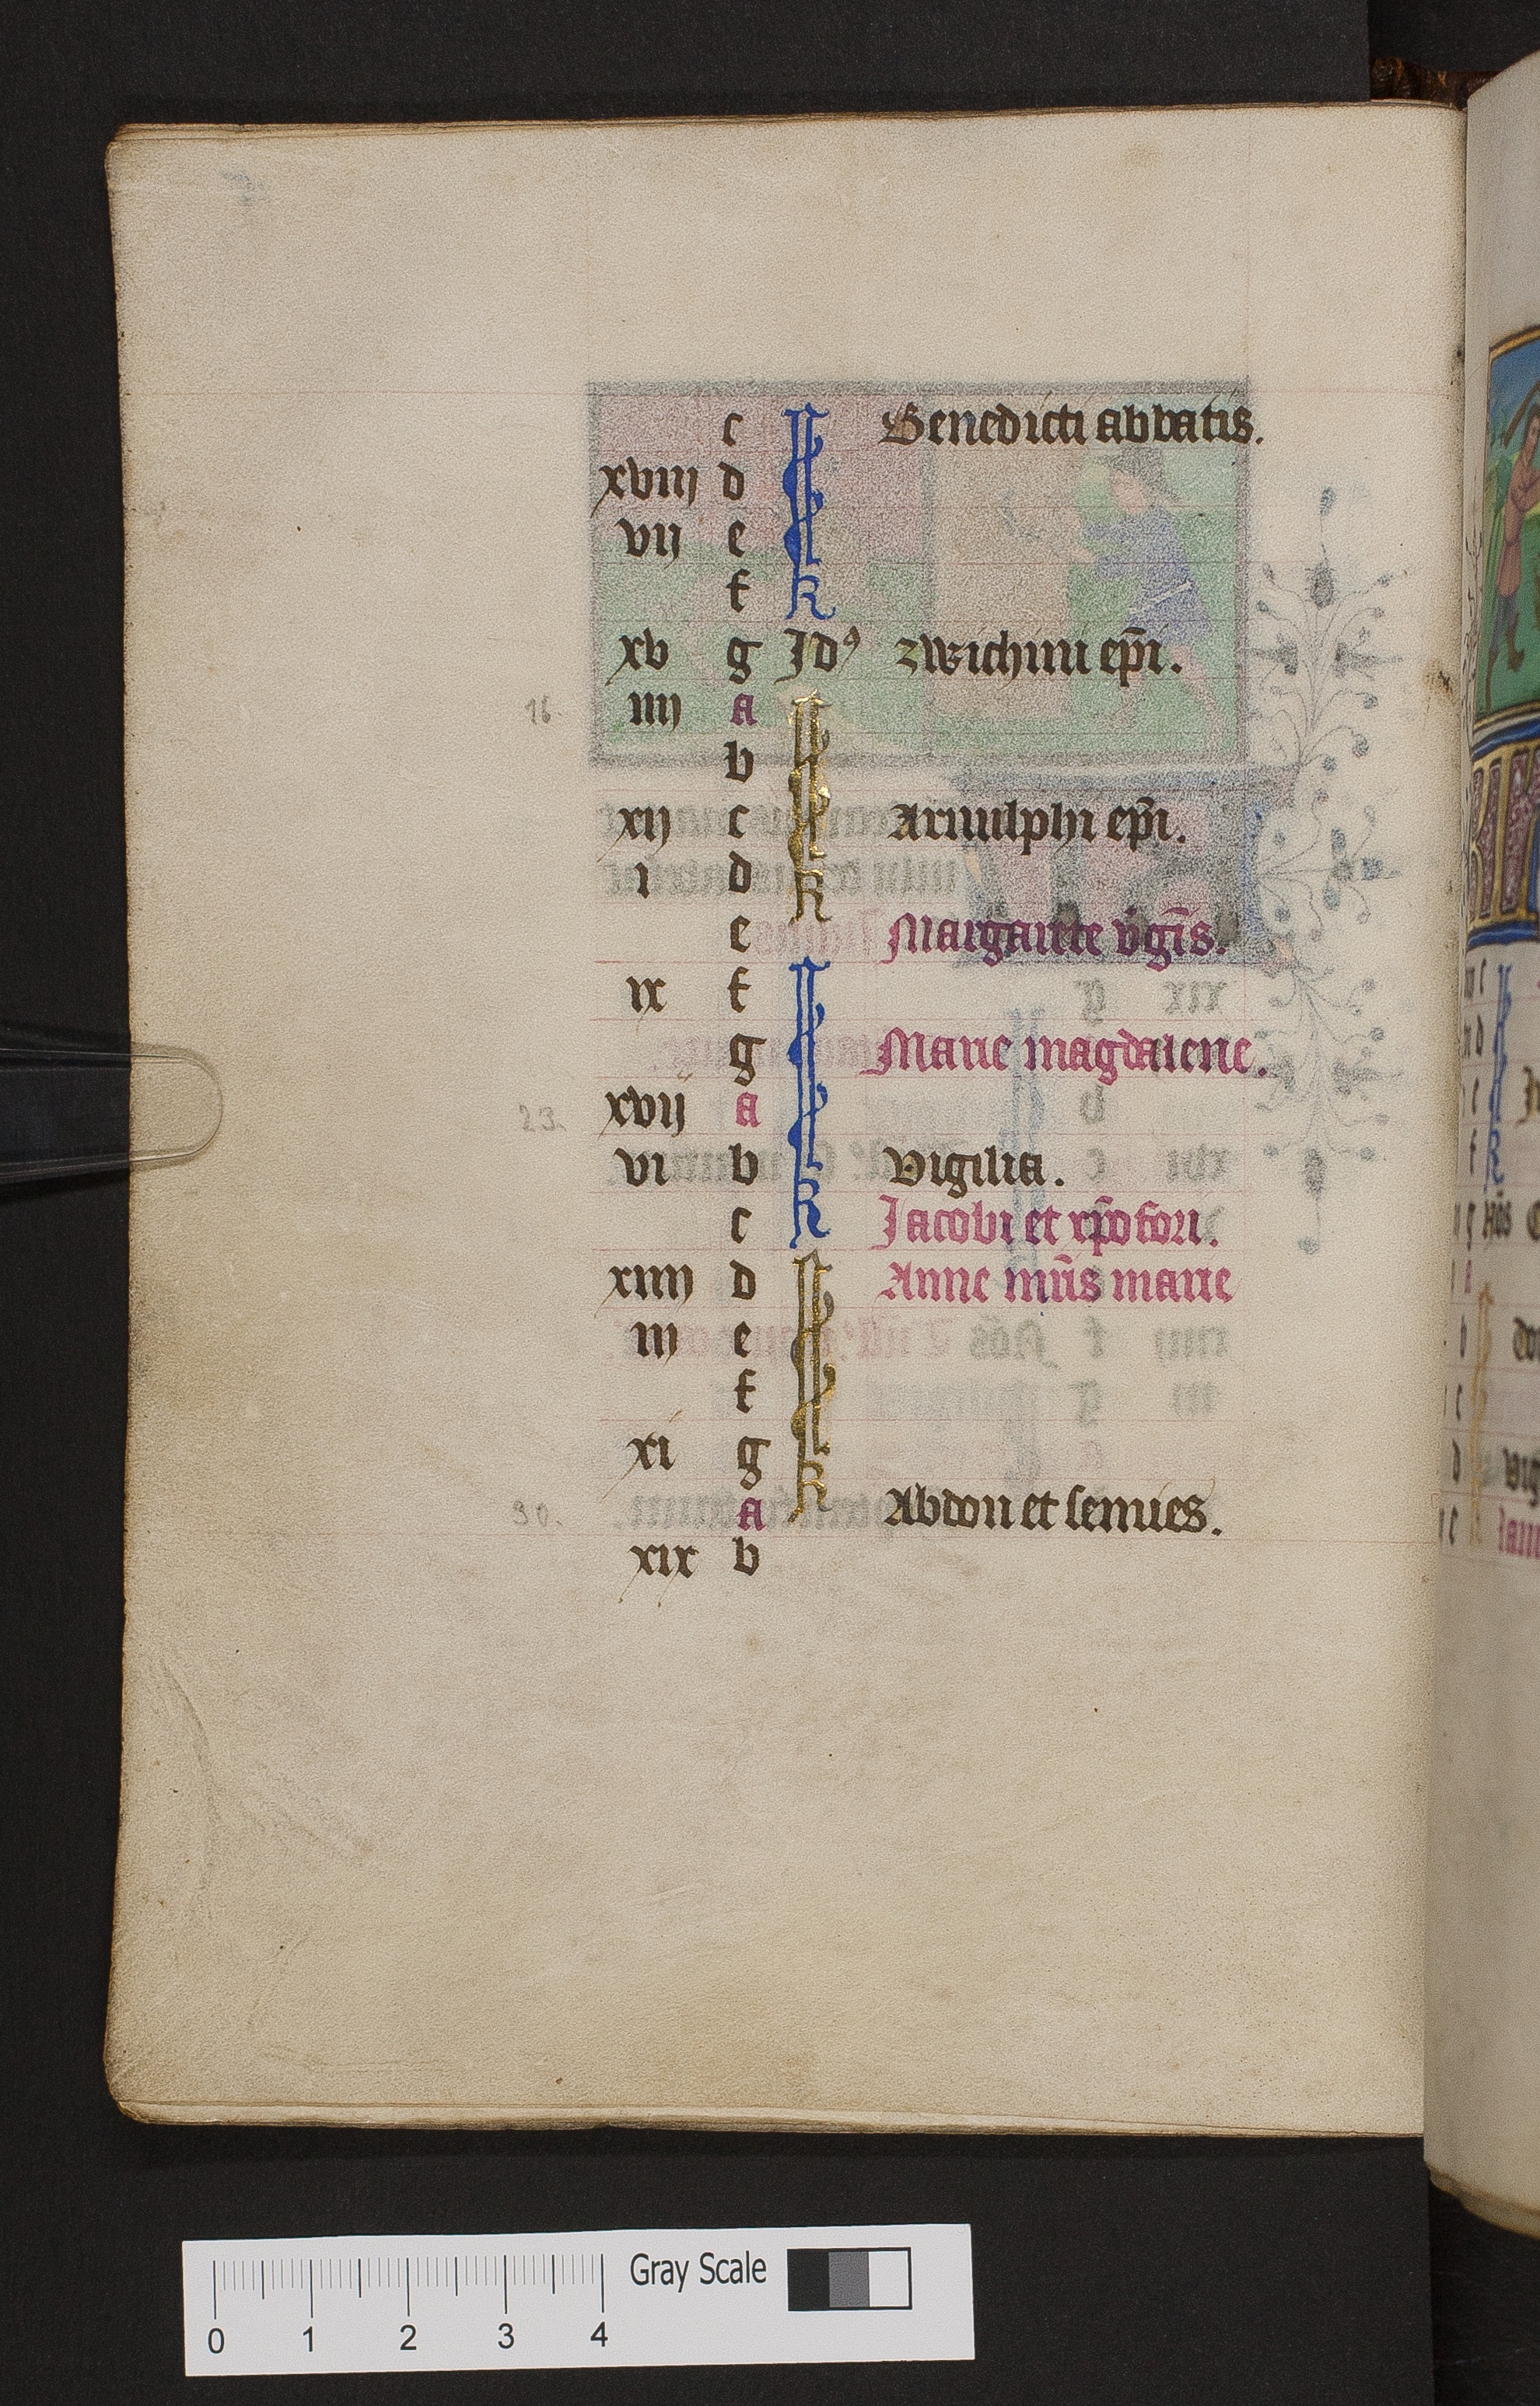 c Benedicti abbatis.
xviij d
vij e
f
xv g Idꝰ zwichini ep̄i.
16. iiij a
b
xij c Arnulphi ep̄i.
i d
e Margarete v̇gīs.
ix f
g Marie magdalene.
23. xvij a
vi b vigilia.
c kl Jacobi et xp̄ofori.
xiiij d Anne mr̄is marie
iij e
f
xi g
30. a kl Abdon et sennes.
xix b
Gray Scale
0 1 2 3 4